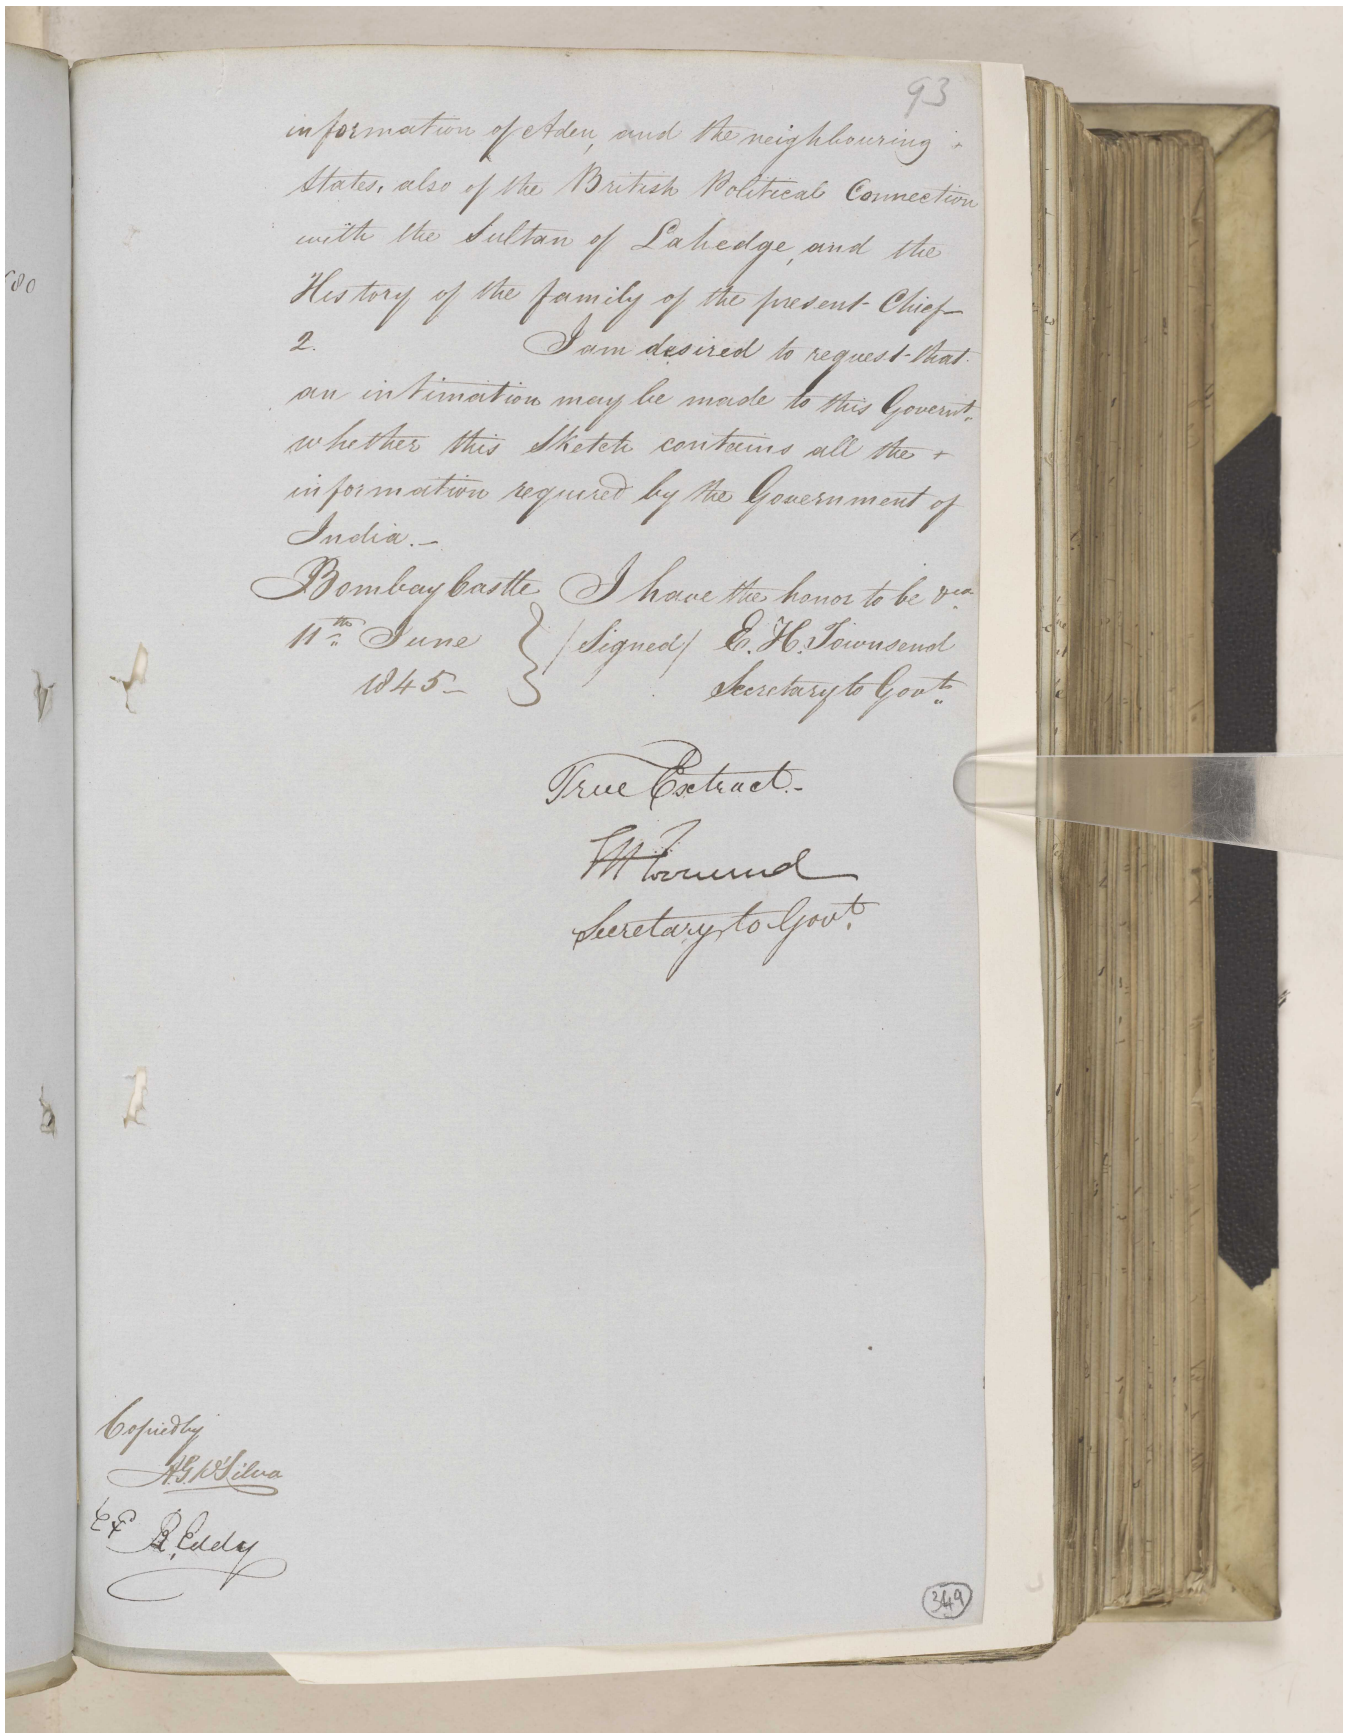 93
information of Aden, and the neighbouring
States, also of the British Political Connection
with the Sultan of Lahedge, and the
History of the family of the present Chief—
2. I am desired to request that
an intimation may be made to this Governt.
whether this Sketch contains all the
information required by the Government of
India.—
Bombay Castle I have the honor to be &ca
11th June (Signed) E. H. Townsend
1845— Secretary to Govt.
True Extract.—
Secretary to Govt.
Copied by
A. G. D'Silva
R. Eddy
349